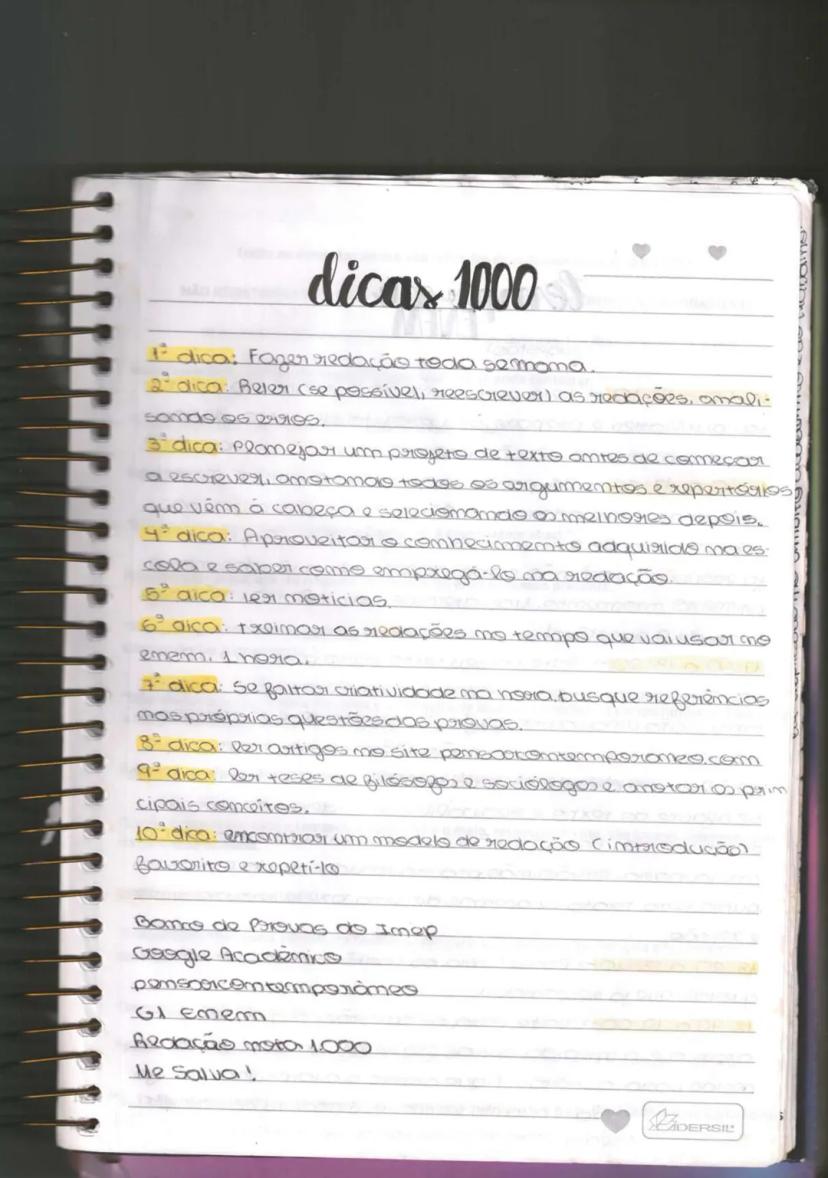 dicas 1000
1ª dica: Fazer redação toda semana.
2ª dica: Reler (se possível, reescrever) as redações, anali-
sando os erros.
3ª dica: Planejar um projeto de texto antes de começar
a escrever, anotando todos os argumentos e repertórios
que vêm à cabeça e selecionando os melhores depois.
4ª dica: Aproveitar o conhecimento adquirido na es-
cola e saber como empregá-lo na redação
5ª dica: ler notícias.
6ª dica: treinar as redações no tempo que vai usar no
enem. 1 hora.
7ª dica: Se faltar criatividade na hora, busque referências
nas próprias questões das provas.
8ª dica: ler artigos no site pensarcontemporaneo.com
9ª dica: ler teses de filósofos e sociólogos e anotar os prin
cipais conceitos.
10ª dica: encontrar um modelo de redação (introdução)
favorito e repetí-lo
Banco de Provas do Inep
Google Acadêmico
pensarcontemporâneo
G1 Enem
Redação nota 1000
Me Salva!
IDERSIL